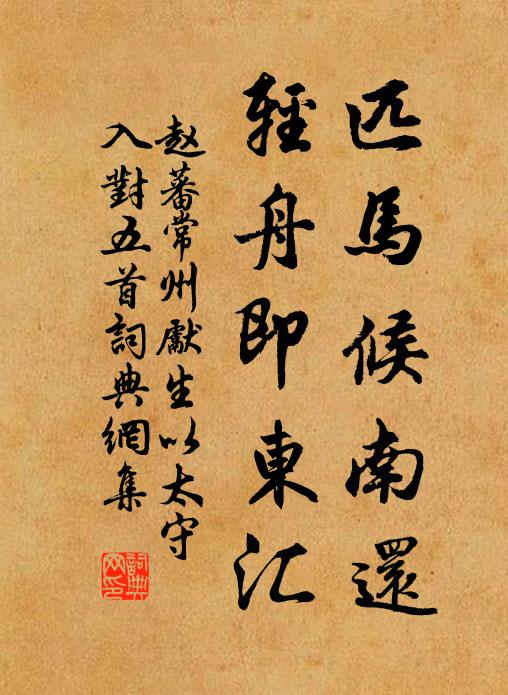 匹馬候南還
輕舟即東汇
赵蕃常州獻生以太守
入對五首詞典網集
詞典网印